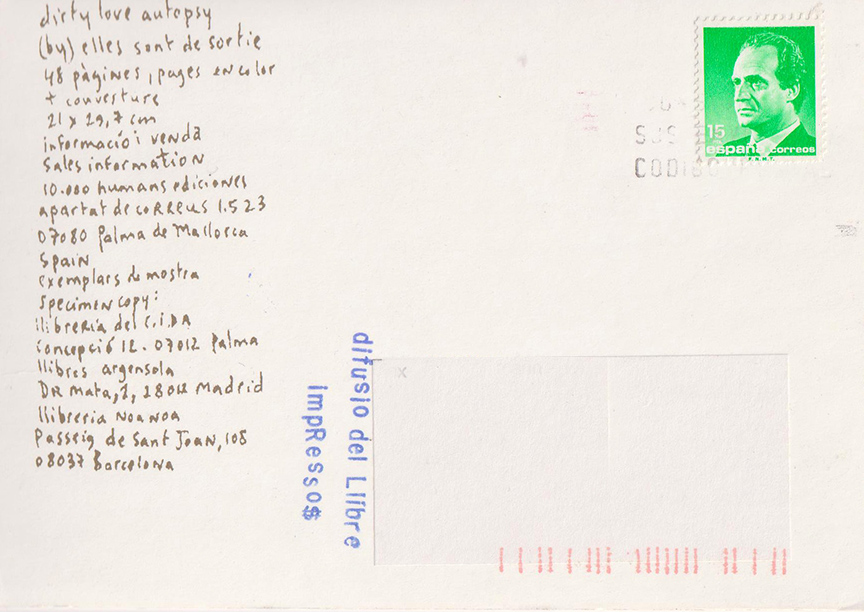 dirty love autopsy
(by) elles sont de sortie
48 pàgines, pages en color
+ couverture
21 x 29,7 cm
informació i venda
sales information
10.000 humans ediciones
apartat de correus 1.523
07080 Palma de Mallorca
Spain
exemplars de mostra
specimen copy:
llibreria del C.I.D.A
Concepció 12 - 07012 Palma
llibres argensola
DR Mata, 1, 28012 Madrid
llibreria NOA NOA
Passeig de Sant Joan, 108
08037 Barcelona
15
españa correos
F.N.M.T.
SUS
CODIGO
difusio del Llibre
impRessos
x